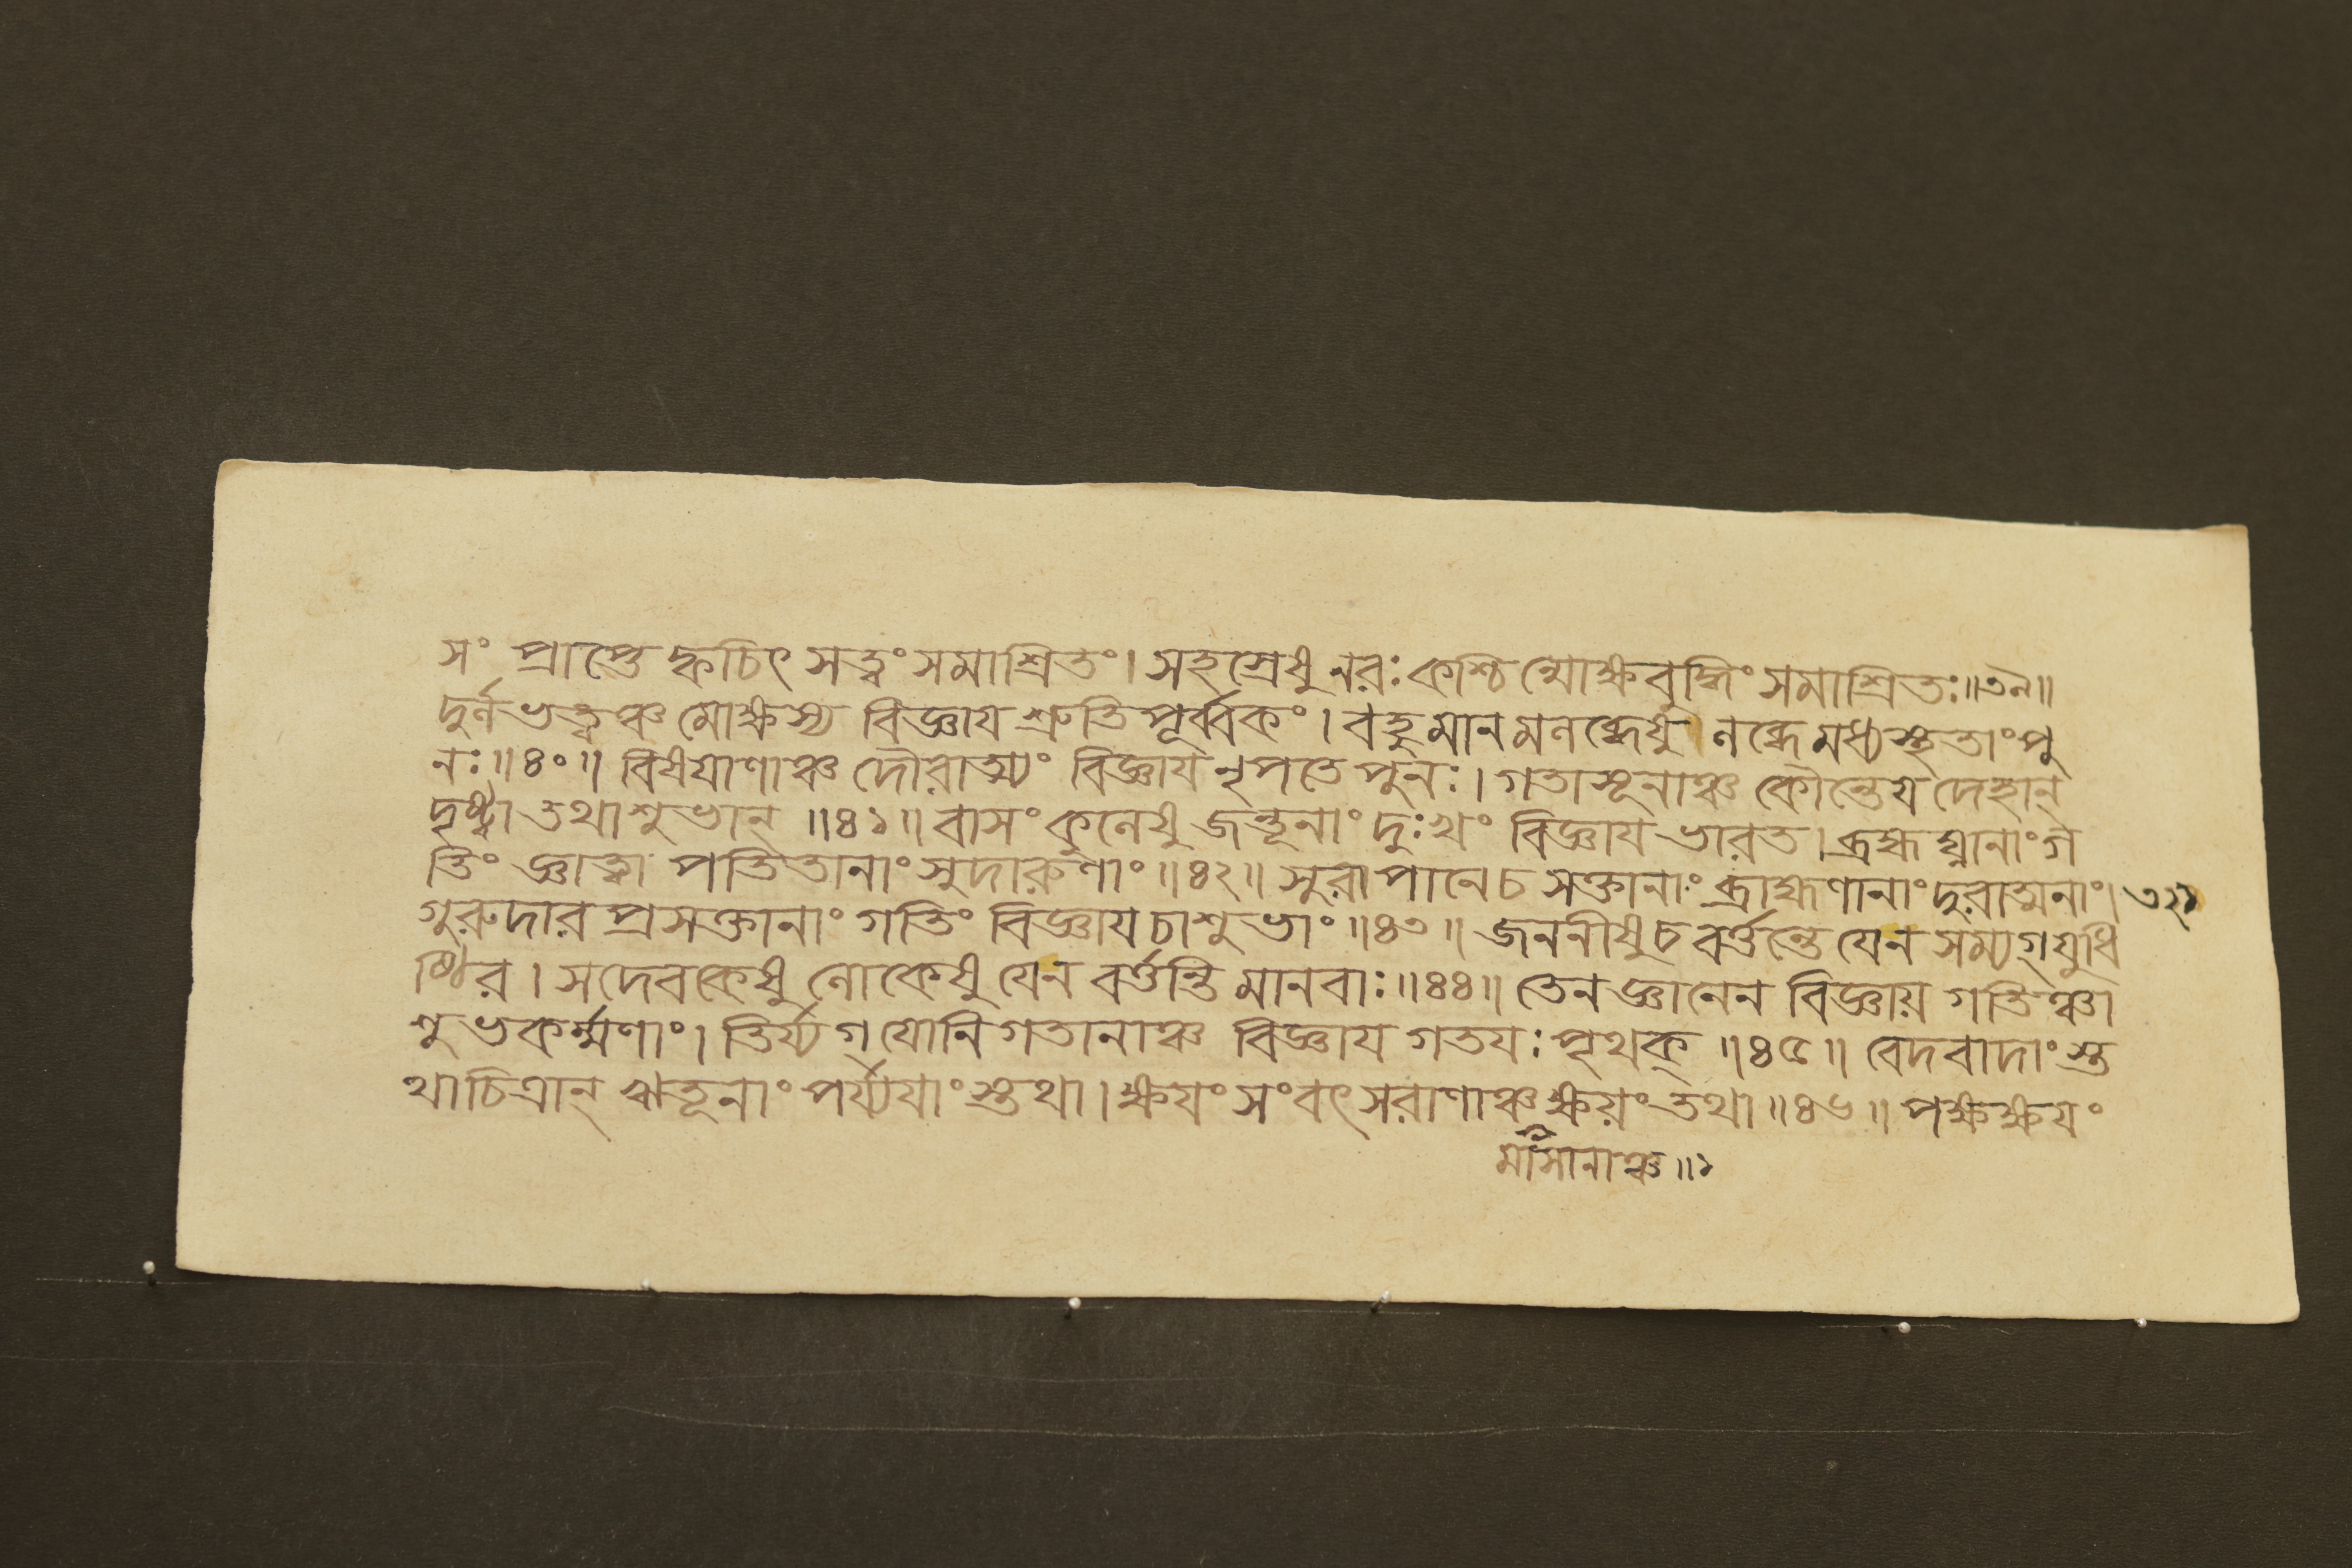 সং প্রাপ্তে হ্কচিৎ সত্ত্বং সমাশ্রিতং। সহস্রেষু নরঃ কশ্চিন্মোক্ষবুদ্ধিং সমাশ্রিতঃ॥৩৯॥
দুর্লভত্বঞ্চ মোক্ষস্য বিজ্ঞায শ্রুতি পূর্ব্বকং। বহুমানমলব্ধেষু লব্ধে মধ্যস্থতাং পু
নঃ॥৪০॥ বিষযাণাঞ্চ দৌরাত্ম্যং বিজ্ঞায নৃপতে পুনঃ। গতাসূনাঞ্চ কৌন্তেয দেহান্
দৃষ্ট্বা তথাশুভান্॥৪১॥ বাসং কুলেষু জন্তূনাং দুঃখং বিজ্ঞায ভারত। ব্রহ্মঘ্নানাং গ
তিং জ্ঞাত্বা পতিতানাং সুদারুণাং॥৪২॥ সুরাপানেচ সক্তানাং ব্রাহ্মণানাং দুরাত্মনাং। ৩২১
গুরুদার প্রসক্তানাং গতিং বিজ্ঞায চাশুভাং॥৪৩॥ জননীষু চ বর্ত্তন্তে যেন সম্যগ্যুধি
ষ্ঠির। সদেবকেষু লোকেষু যেন বর্ত্তন্তি মানবাঃ॥৪৪॥ তেন জ্ঞানেন বিজ্ঞায় গতিঞ্চা
শুভকর্ম্মণাং। তির্য্যগ্ যোনি গতানাঞ্চ বিজ্ঞায গতযঃ পৃথক্॥৪৫॥ বেদবাদাংস্ত
থা চিত্রান্ ঋতূনাং পর্য্যযাংস্তথা। ক্ষযং সংবৎসরাণাঞ্চ ক্ষয়ং তথা॥৪৬॥ পক্ষক্ষযং
মাসানাঞ্চ॥১